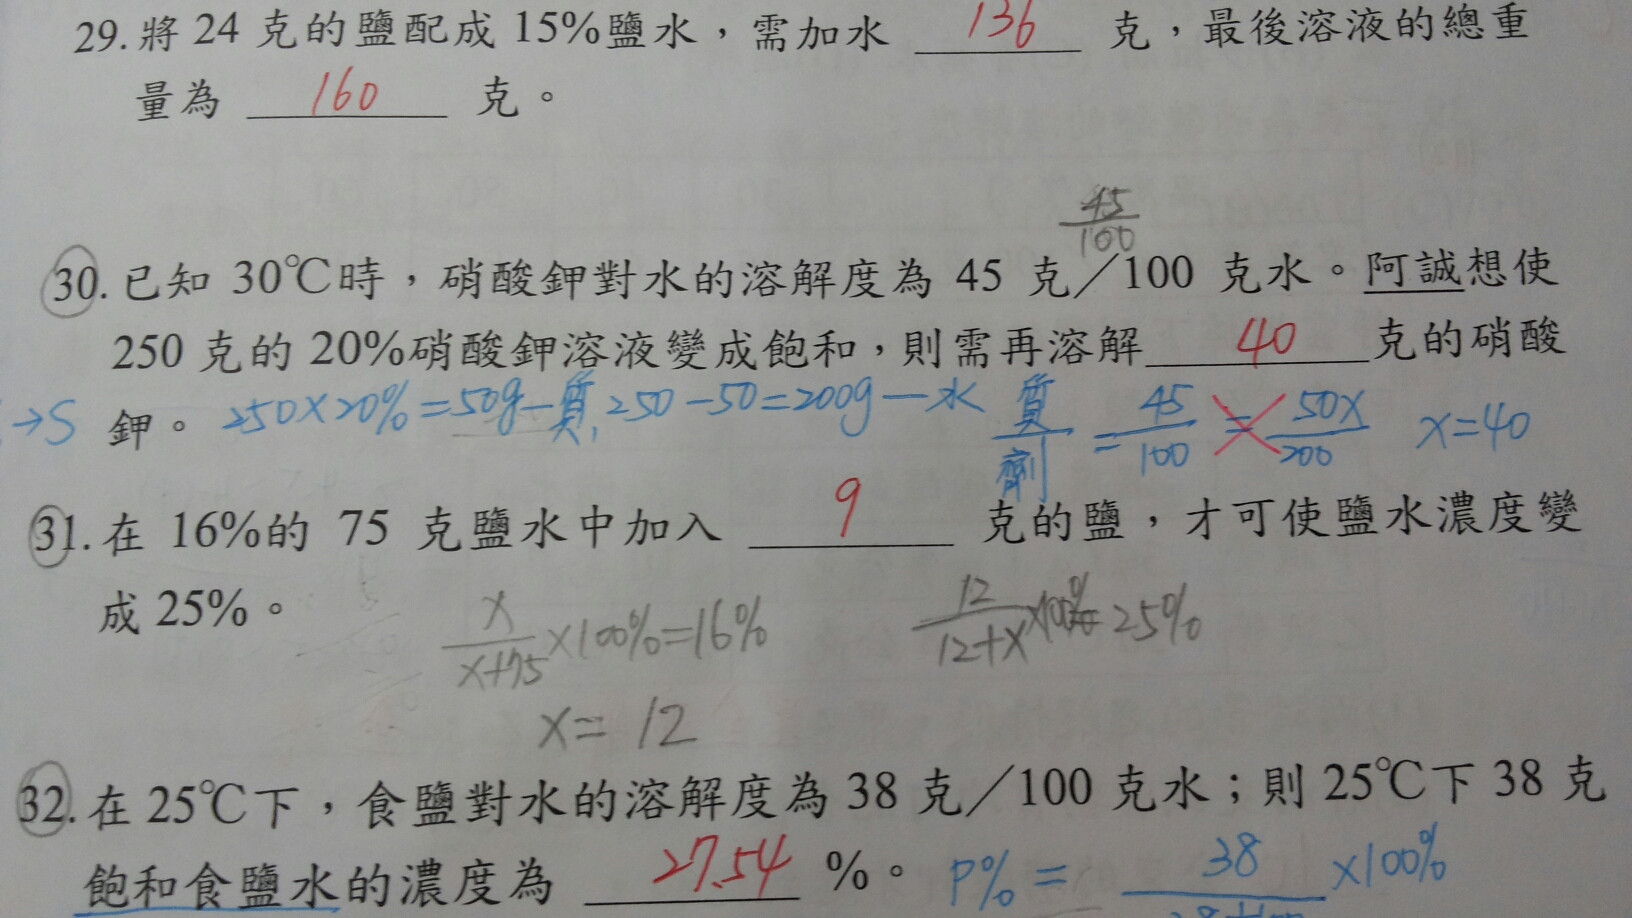 29. 將 24 克的鹽配成 15%鹽水，需加水 136 克，最後溶液的總重
量為 160 克。
45
100
30. 已知 30℃時，硝酸鉀對水的溶解度為 45 克／100 克水。阿誠想使
250 克的 20%硝酸鉀溶液變成飽和，則需再溶解 40 克的硝酸
→S 鉀。 250×20%=50g—質, 250-50=200g—水 質/劑 = 45/100 = 50x/200 x=40
31. 在 16%的 75 克鹽水中加入 9 克的鹽，才可使鹽水濃度變
成 25%。
x/x+75 ×100%=16% 12/12+x ×100%= 25%
x= 12
32. 在 25℃下，食鹽對水的溶解度為 38 克／100 克水；則 25℃下 38 克
飽和食鹽水的濃度為 27.54 %。 P% = 38 ×100%